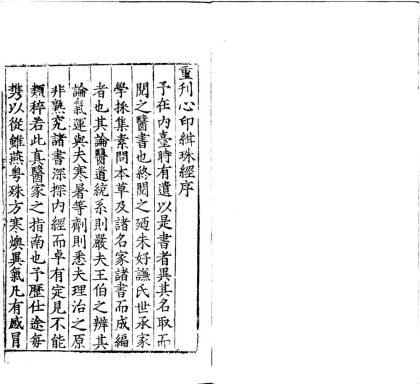 重刊心印紺珠經序
予在内臺時有遺以是書者異其名取而
閱之醫書也終閱之廼朱好謙氏世承家
學採集素問本草及諸名家諸書而成編
者也其論醫道統系則嚴夫王伯之辨其
論氣運與夫寒暑等劑則悉夫理治之原
非熟究諸書深探内經而卓有定見不能
類稡若此真醫家之指南也予歷仕途每
携以從雖燕粤殊方寒燠異氣凡有感冐